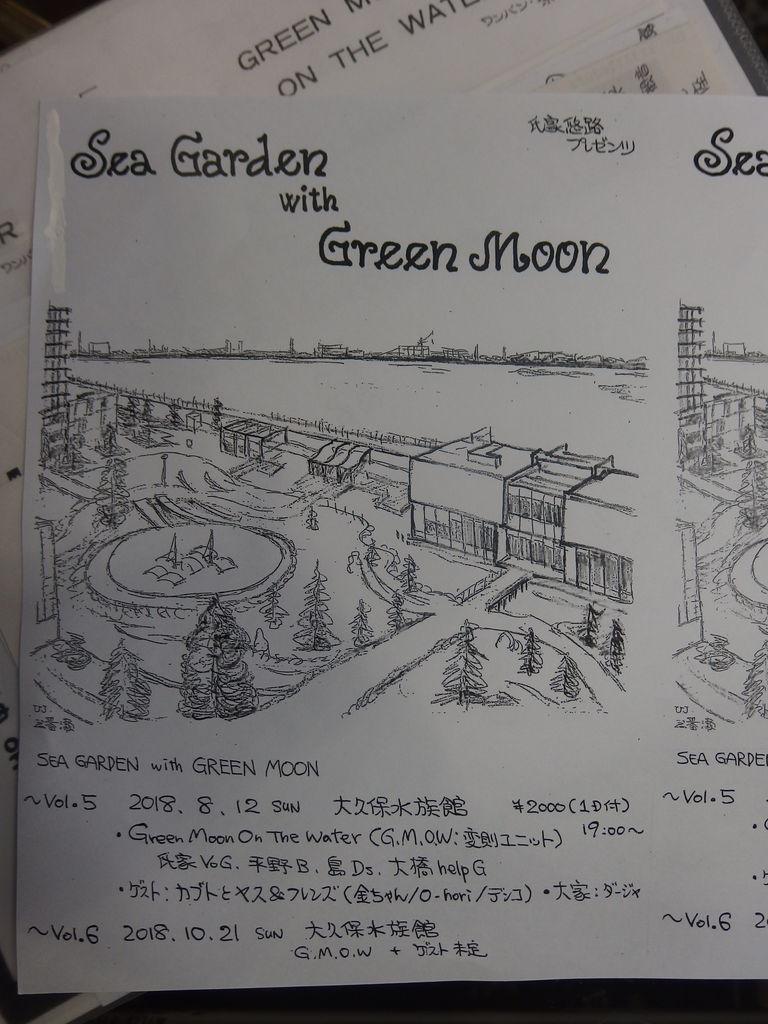 GREEN M
ON THE WATE
ワンパン・
氏家悠路
プレゼンツ
Sea Garden
with
Green Moon
Sea
R
SEA GARDEN with GREEN MOON
SEA GARDE
~Vol.5 2018.8.12 SUN 大久保水族館 ¥2000(1D付)
19:00~
・Green Moon On The Water (G.M.O.W:変則ユニット)
氏家 Vo G. 平野 B. 島 Ds. 大橋 help G
・ゲスト:カブトとヤス&フレンズ(金ちゃん/O-hori/デンコ) ・大家:ダージャ
~Vol.6 2018.10.21 SUN 大久保水族館
G.M.O.W + ゲスト未定
~Vol.5
~Vol.6 2